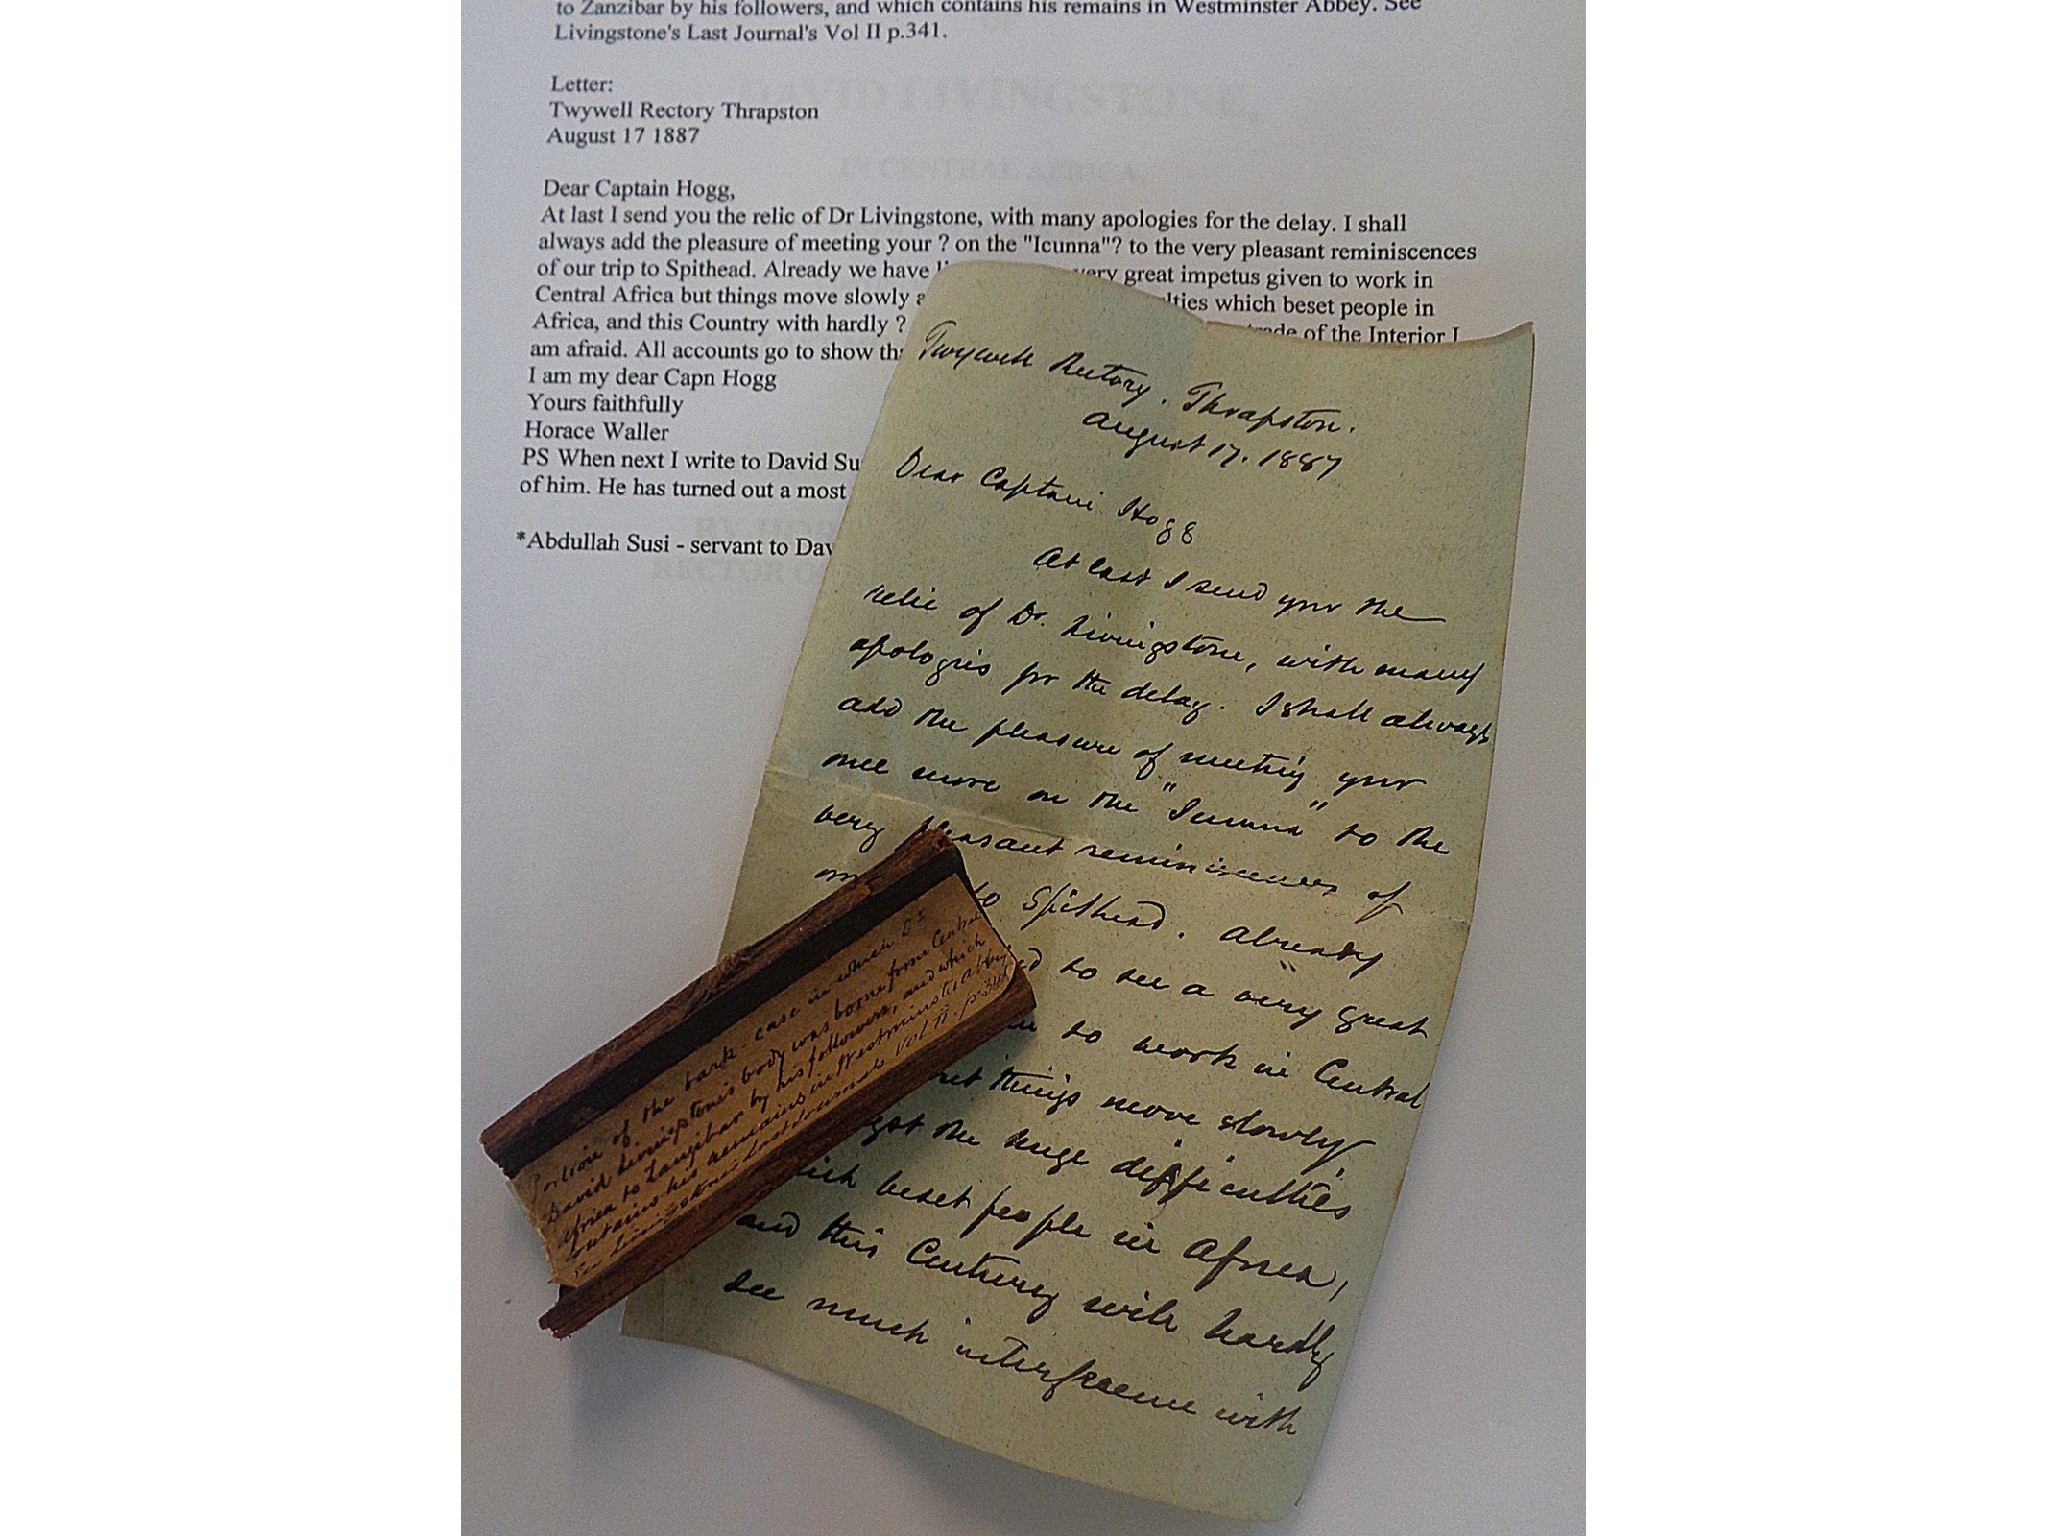 to Zanzibar by his followers, and which contains his remains in Westminster Abbey. See
Livingstone's Last Journal's Vol II p.341.
DAVID LIVINGSTONE
IN CENTRAL AFRICA
Letter:
Twywell Rectory Thrapston
August 17 1887
Dear Captain Hogg,
At last I send you the relic of Dr Livingstone, with many apologies for the delay. I shall
always add the pleasure of meeting your ? on the "Icunna"? to the very pleasant reminiscences
of our trip to Spithead. Already we have very great impetus given to work in
Central Africa but things move slowly which beset people in
Africa, and this Country with hardly ? of the Interior I
am afraid. All accounts go to show
I am my dear Capn Hogg
Yours faithfully
Horace Waller
PS When next I write to David
of him. He has turned out a most
*Abdullah Susi - servant to
Twywell Rectory. Thrapston.
August 17. 1887
Dear Captain Hogg
At last I send you the
relic of Dr. Livingstone, with many
apologies for the delay. I shall always
add the pleasure of meeting your
once more on the "Icunna" to the
very pleasant reminiscences of
to Spithead. Already
to see a very great
to work in Central
things move slowly
the huge difficulties
beset people in Africa,
and this Century with hardly
see much interference with
Portion of the bark-case in which Dr
David Livingstone's body was borne from Central
Africa to Zanzibar by his followers, and which
contains his remains in Westminster Abbey
See Livingstone's Last Journals. Vol II. p 341